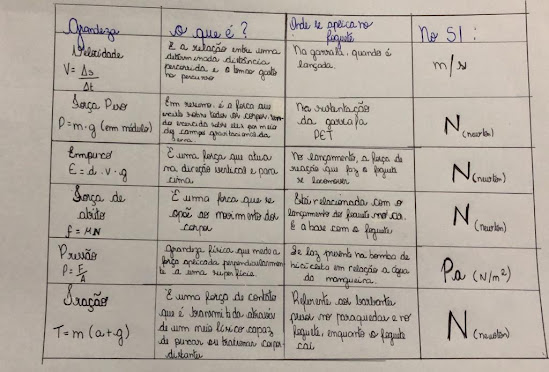 Grandeza
o que é?
Onde se aplica no
foguete
No SI:
Velocidade
V = Δs
Δt
É a relação entre uma
determinada distância
percorrida e o tempo gasto
no percurso
Na garrafa, quando é
lançada.
m/s
Força Peso
P=m.g (em módulo)
Em resumo, é a força que
sobre todos os corpos,
exercida sobre eles por meio
do campo gravitacional da
Terra
Na sustentação
da garrafa
PET
N (newton)
Empuxo
E = d . v . g
É uma força que atua
na direção vertical e para
cima
No lançamento, a força de
reação que faz o foguete
se locomover
N (newton)
Força de
atrito
f = μN
É uma força que se
opõe ao movimento dos
corpos
Está relacionada com o
lançamento do foguete
E a base com o foguete
N (newton)
Pressão
P = F
A
Grandeza física que mede a
força aplicada perpendicularmente
a uma superfície.
Se faz presente na bomba de
bicicleta em relação a água
da mangueira.
Pa (N/m²)
Tração
T=m(a+g)
É uma força de contato
que é transmitida através
de um meio físico capaz
de puxar ou tracionar corpos
distantes
Referente aos barbantes
presos no paraquedas e no
foguete, enquanto o foguete
cai
N (newton)